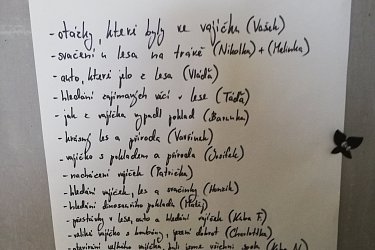 - otázky, které byly ve vajíčku (Vašek)
- svačení u lesa na trávě (Nikolka) + (Melinka)
- auto, které jelo z lesa (Vláďa)
- hledání zajímavých věcí v lese (Táďa)
- jak z vajíčka vypadl poklad (Barunka)
- krásný les a příroda (Vavřínek)
- vajíčko s pokladem a příroda (Josífek)
- nacházení vajíček (Patrička)
- hledání vajíček, les a svačinky (Honzík)
- hledání dinosauřího pokladu (Matěj)
- přestávky v lese, auto a hledání vajíček (Kuba F.)
- veliké vajíčko s bonbóny, jarní dobrot (Charlottka)
- otevírání velkého vajíčka, byli jsme všichni spolu (Kuba N.)